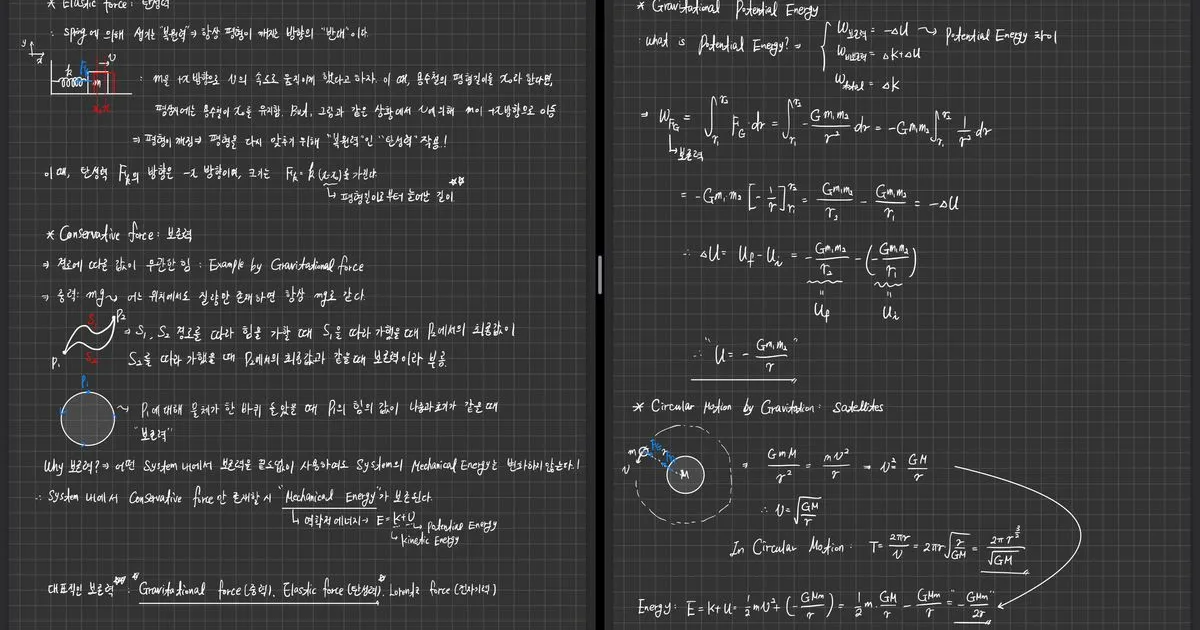 * Elastic force : 탄성력
: Spring에 의해 생기는 "복원력" → 항상 평형이 깨지는 방향의 "반대"이다.
y
x
k
F_k
m
v
x₀
x
: m을 +x방향으로 v의 속도로 움직이게 했다고 하자. 이 때, 용수철의 평형길이를 x₀라 한다면,
평상시에는 용수철이 x₀를 유지함. But, 그림과 같은 상황에서 v에 의해 m이 +x방향으로 이동
⇒ 평형이 깨짐 → 평형을 다시 맞추기 위해 "복원력"인 "탄성력" 작용!
이 때, 탄성력 F_k의 방향은 -x 방향이며, 크기는 F_k = k(x-x₀)를 가진다.
↳ 평형길이로부터 늘어난 길이
* Conservative force : 보존력
⇒ 경로에 따른 값이 무관한 힘 : Example by Gravitational force
⇒ 중력 : mg ~ 어느 위치에서도 질량만 존재하면 항상 mg로 같다.
S₁
P₂
P₁
S₂
→ S₁, S₂ 경로를 따라 힘을 가할 때 S₁을 따라 가했을 때 P₂에서의 최종값이
S₂를 따라 가했을 때 P₂에서의 최종값과 같을 때 보존력이라 부름.
P₁
~ P₁에 대해 물체가 한 바퀴 돌았을 때 P₁의 힘의 값이 같은 때
"보존력"
Why 보존력? → 어떤 System 내에서 보존력을 끊임없이 사용하여도 System의 Mechanical Energy는 변화하지 않는다.!
∴ System 내에서 Conservative force만 존재할 시 "Mechanical Energy"가 보존된다.
↳ 역학적에너지 → E = K+U
→ Potential Energy
↳ Kinetic Energy
대표적인 보존력 : Gravitational force (중력), Elastic force (탄성력), Lorentz force (전자기력)
* Gravitational Potential Energy
: What is Potential Energy? →
W보존력 = -ΔU ~→ Potential Energy 차이
W비보존력 = ΔK+ΔU
W_total = ΔK
⇒ W_FG = ∫_r₁^r₂ F_G · dr = ∫_r₁^r₂ - Gm₁m₂/r² dr = -Gm₁m₂ ∫_r₁^r₂ 1/r² dr
↳ 보존력
= -Gm₁m₂ [-1/r]_r₁^r₂ = Gm₁m₂/r₂ - Gm₁m₂/r₁ = -ΔU
∴ ΔU = U_f - U_i = -Gm₁m₂/r₂ - (-Gm₁m₂/r₁)
" "
U_f U_i
∴ "U = - Gm₁m₂/r"
* Circular Motion by Gravitation : Satellites
m
v
r
M
⇒ GmM/r² = mv²/r → v² = GM/r
∴ v = √(GM/r)
In Circular Motion : T = 2πr/v = 2πr√(r/GM) = 2πr^(3/2)/√GM
Energy : E = K+U = 1/2 mv² + (-GMm/r) = 1/2 m · GM/r - GMm/r = "-GMm/2r"